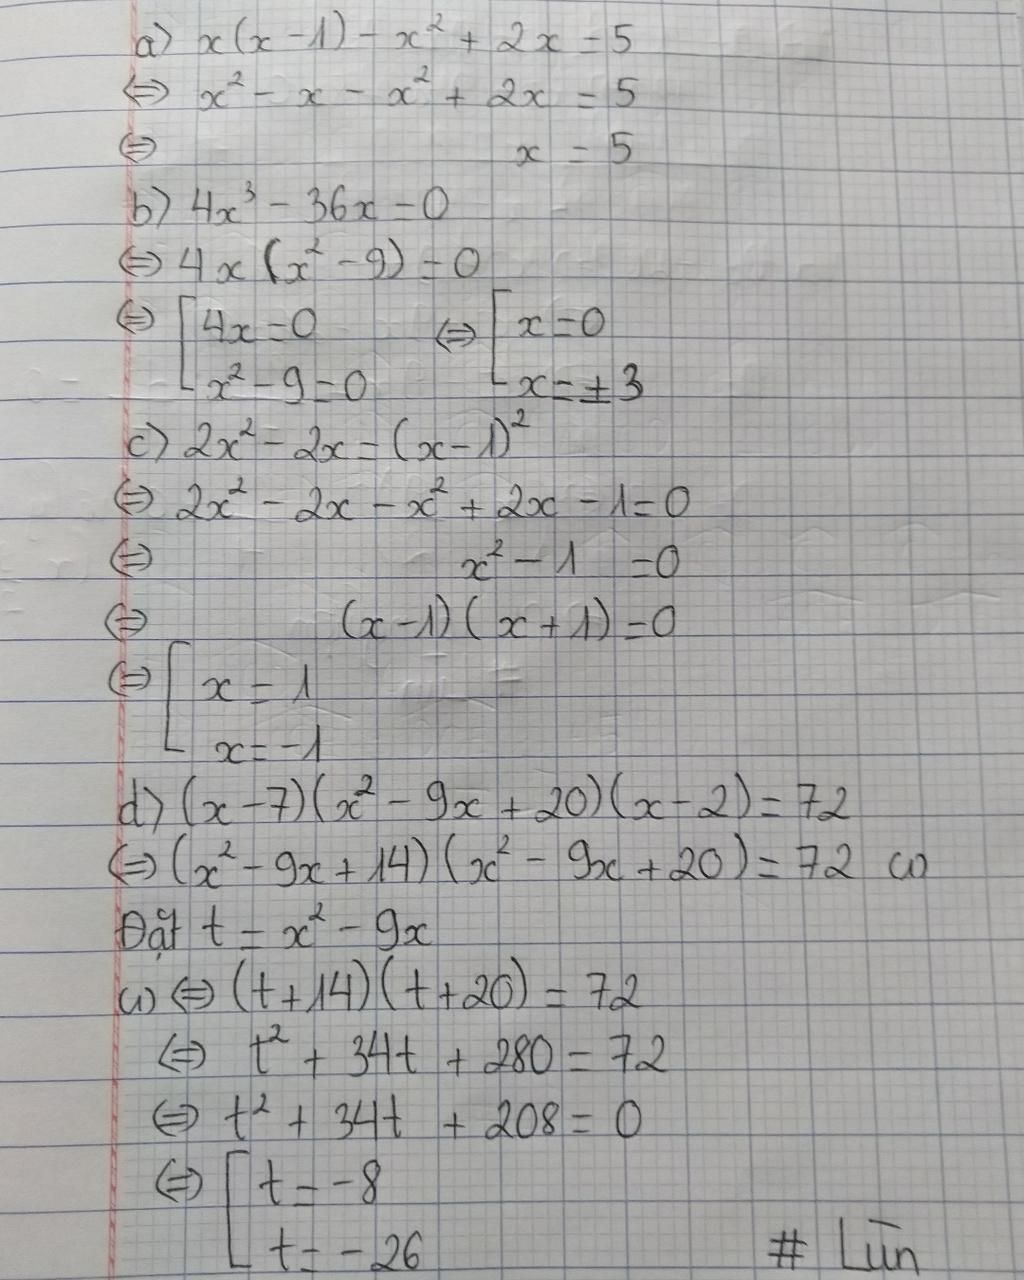 a) x(x-1) - x² + 2x = 5
⇔ x² - x - x² + 2x = 5
⇔ x = 5
b) 4x³ - 36x = 0
⇔ 4x (x² - 9) = 0
⇔ [ 4x = 0 ⇔ [ x = 0
x² - 9 = 0 x = ±3
c) 2x² - 2x = (x-1)²
⇔ 2x² - 2x - x² + 2x - 1 = 0
⇔ x² - 1 = 0
⇔ (x-1)(x+1) = 0
⇔ [ x = 1
x = -1
d) (x-7)(x² - 9x + 20)(x-2) = 72
⇔ (x² - 9x + 14)(x² - 9x + 20) = 72 (1)
Đặt t = x² - 9x
(1) ⇔ (t+14)(t+20) = 72
⇔ t² + 34t + 280 = 72
⇔ t² + 34t + 208 = 0
⇔ [ t = -8
t = -26 # Lūn